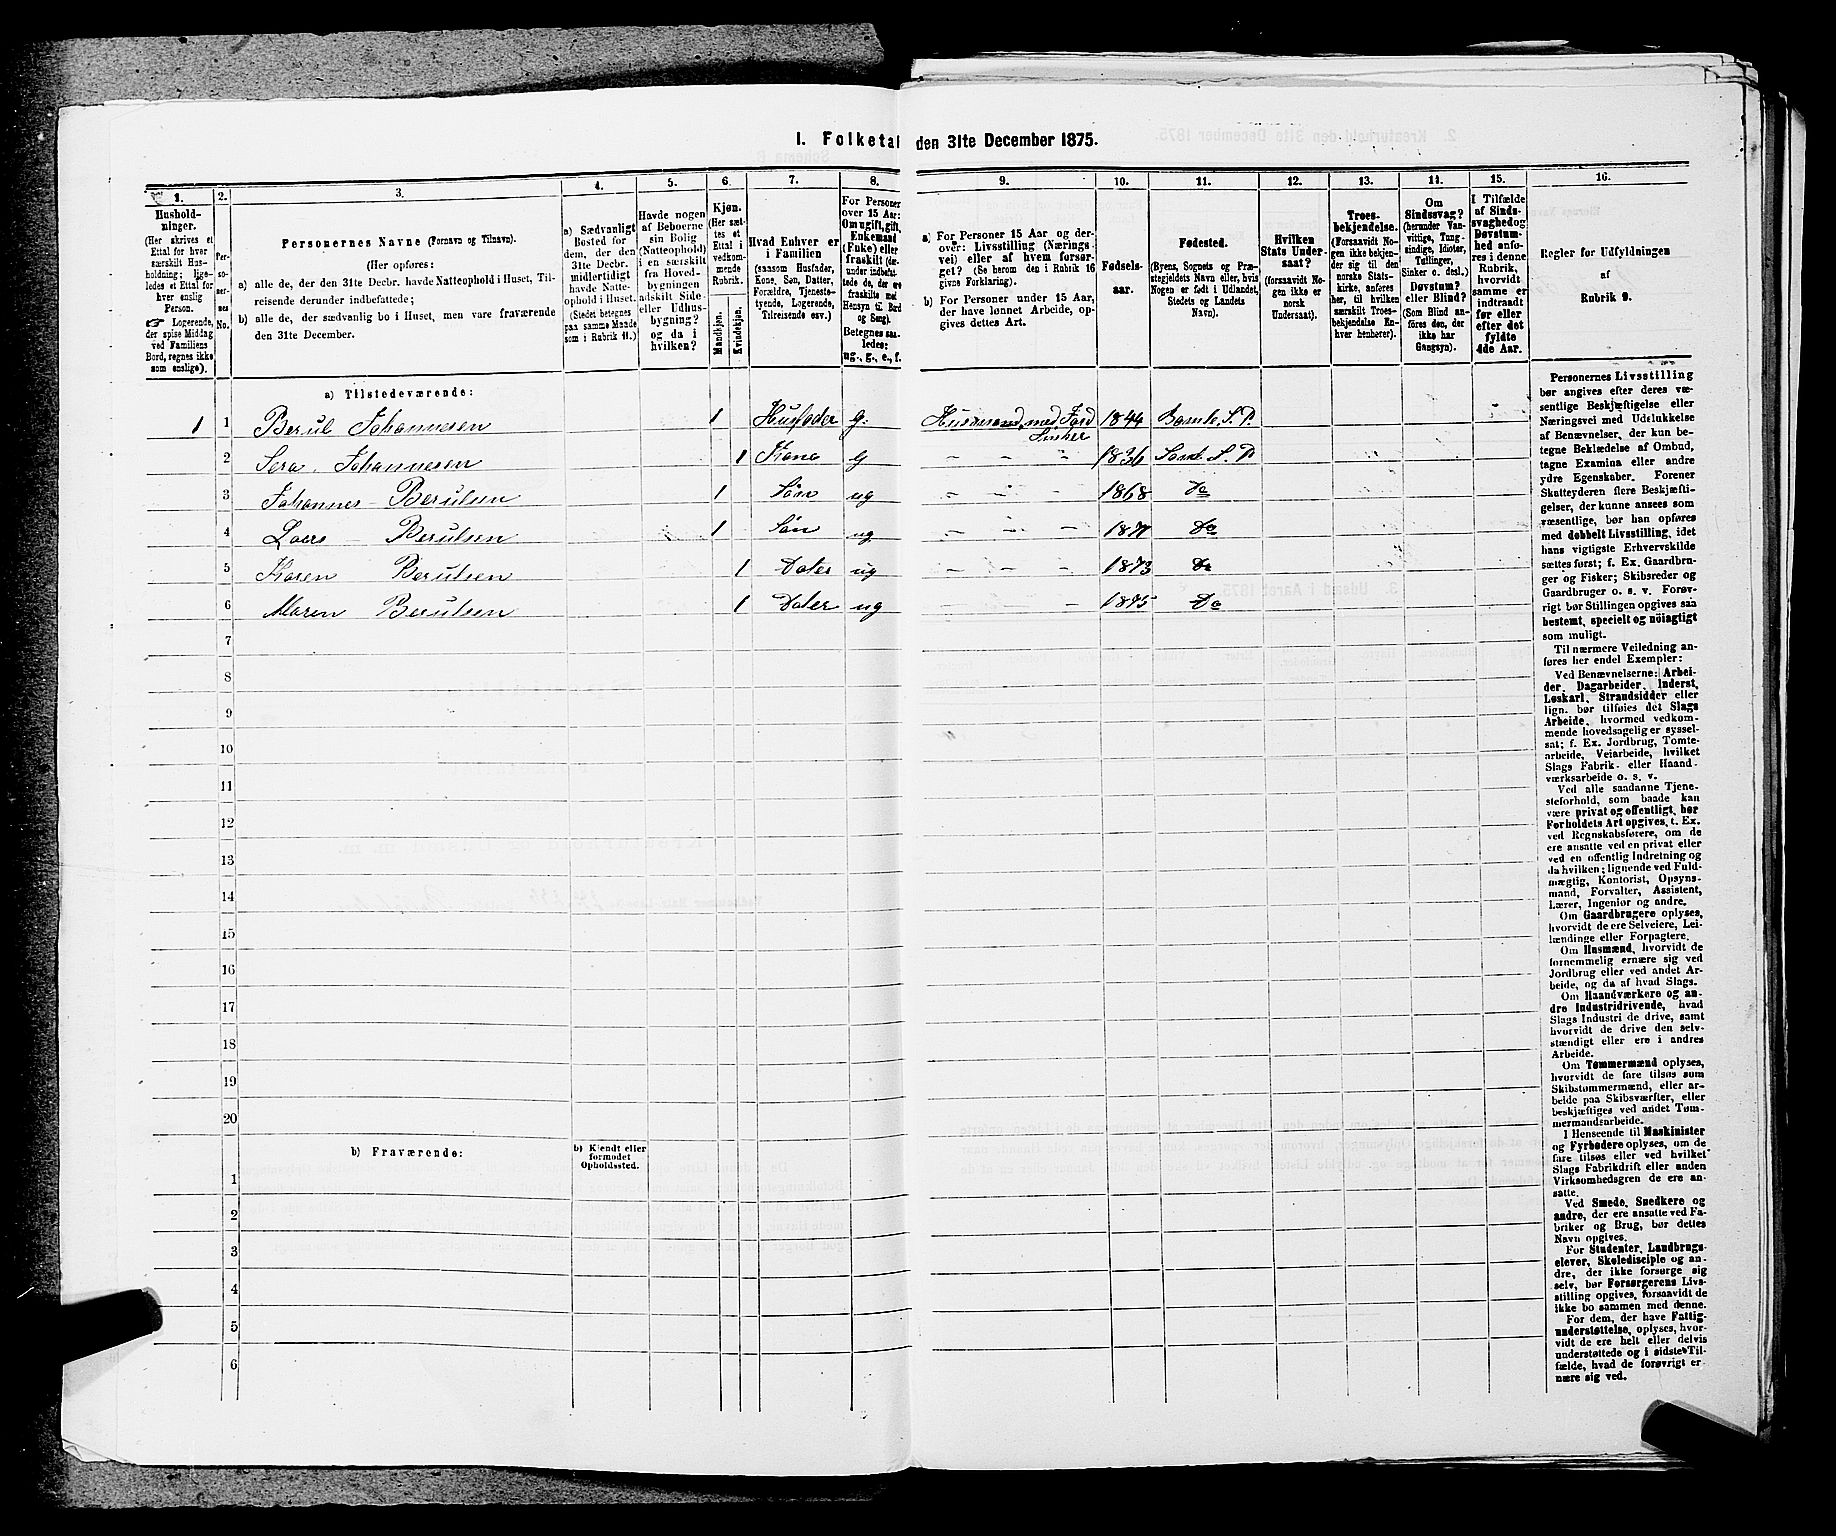 I. Folketal den 31te December 1875.
1.
2.
3.
4.
5.
6.
7.
8.
9.
10.
11.
12.
13.
14.
15.
16.
Hushold-
ninger.
(Her skrives et
Ettal for hver
særskilt Hus-
holdning; lige-
ledes et Ettal for
hver enslig
Person.
Logerende,
der spise Middag
ved Familiens
Bord, regnes ikke
som enslige).
Per-
so-
ner-
nes
No.
Personernes Navne (Fornavn og Tilnavn).
(Her opføres:
a) alle de, der den 31te Decbr. havde Natteophold i Huset, Til-
reisende derunder indbefattede;
b) alle de, der sædvanlig bo i Huset, men vare fraværende
den 31te December.
a) Sædvanligt
Bosted for
dem, der den
31te Decbr.
midlertidigt
havde Natte-
ophold i Huset.
(Stedet betegnes
paa samme Maade
som i Rubrik 11.)
Havde nogen
af Beboerne
sin Bolig
(Natteophold)
i en særskilt
fra Hoved-
bygningen
adskilt Side-
eller Udhus-
bygning?
og da i
hvilken?
Kjøn.
(Her sæt-
tes et
Ettal i
vedkom-
mende
Rubrik.
Mandkjøn.
Kvindekjøn.
Hvad Enhver er
i Familien
(saasom Husfader,
Kone, Søn, Datter,
Forældre, Tjeneste-
tyende, Logerende,
Tilreisende osv.)
For Personer
over 15 Aar:
Om ugift, gift,
Enkemand
(Enke) eller
fraskilt (der-
under indbefat-
tede de, der ere
fraskilte med
Hensyn til Bord
og Seng).
Betegnes saa-
ledes:
ug., g., e., f.
a) For Personer over 15 Aar og der-
over: Livsstilling (Nærings-
vei) eller af hvem forsør-
get? (Se herom den i Rubrik 16
givne Forklaring).
b) For Personer under 15 Aar,
der have lønnet Arbeide, op-
gives dettes Art.
Fødsels-
aar.
Fødested.
(Byens, Sognets og Præ-
stegjeldets Navn eller, hvis
Nogen er født i Udlandet,
Stedets og Landets
Navn).
Hvilken
Stats Under-
saat?
(forsaavidt No-
gen ikke er
norsk
Undersaat).
Troes-
bekjendelse.
(Forsaavidt No-
gen ikke bekjen-
der sig til den
norske Stats-
kirke, anføres
her, til hvilken
særskilt Troes-
bekjendelse En-
hver henhører).
Om
Sindssvag?
(herunder Van-
vittige, Tung-
sindige, Idioter,
Tullinger,
Sinker o. desl.)
Døvstum?
eller Blind?
(Som Blind an-
føres den, der
ikke har
Gangsyn).
I Tilfælde
af Sinds-
svaghed og
Døvstum-
hed anfø-
res i denne
Rubrik,
hvorvidt
samme er
indtraadt
før eller
efter det
fyldte
4de Aar.
Regler for Udfyldningen
af
Rubrik 9.
a) Tilstedeværende:
1 1 Berul Johannesen 1 Husfader g. Husmand med Jord 1844 Bamle S. P.
2 Sera Johannesen 1 Kone g – – – 1836 S. P.
3 Johannes Berulsen 1 Søn ug – – – 1868 Do
4 Lars Berulsen 1 Søn ug – – – 1871 Do
5 Karen Berulsen 1 Dater ug – – – 1873 Do
6 Maren Berulsen 1 Dater ug – – – 1875 Do
7
8
9
10
11
12
13
14
15
16
17
18
19
20
b) Fraværende:
b) Kjendt eller
formodet
Opholdssted.
1
2
3
4
5
6
Personernes Livsstilling
bør angives efter deres væ-
sentlige Beskjæftigelse eller
Næringsvei med Udelukkelse
af Benævnelser, der kun be-
tegne Beklædelse af Ombud,
tagne Examina eller andre
ydre Egenskaber. Forener
Skatteyderen flere Beskjæfti-
gelser, der kunne ansees som
væsentlige, bør han opføres
med dobbelt Livsstilling, idet
hans vigtigste Erhvervskilde
sættes først; f. Ex. Gaardbru-
ger og Fisker; Skibsreder og
Gaardbruger o. s. v. Forøv-
rigt bør Stillingen opgives saa
bestemt, specielt og nöiagtigt
som muligt.
Til nærmere Veiledning an-
føres her endel Exempler:
Ved Benævnelserne: Arbei-
der, Dagarbeider, Inderst,
Løskarl, Strandsidder eller
lign. bør tilføies det Slags
Arbeide, hvormed vedkom-
mende hovedsagelig er syssel-
sat; f. Ex. Jordbrug, Tomte-
arbeide, Veiarbeide, hvilket
Slags Fabrik- eller Haand-
værksarbeide o. s. v.
Ved alle saadanne Tjene-
steforhold, som baade kan
være privat og offentligt, bør
Forholdets Art opgives, t. Ex.
ved Regnskabsførere, om de
ere ansatte ved en privat eller
ved en offentlig Indretning og
da hvilken; lignende ved Fuld-
mægtig, Kontorist, Opsyns-
mand, Forvalter, Assistent,
Lærer, Ingeniør og andre.
Om Gaardbrugere oplyses,
hvorvidt de ere Selveiere, Lei-
lændinge eller Forpagtere.
Om Husmænd, hvorvidt de
fornemmelig ernære sig ved
Jordbrug eller ved andet Ar-
beide, og da af hvad Slags.
Om Haandværkere og an-
dre Industridrivende, hvad
Slags Industri de drive, samt
hvorvidt de drive den selv-
stændigt eller ere i andres
Arbeide.
Om Tømmermænd oplyses,
hvorvidt de fare tilsøs som
Skibstømmermænd, eller ar-
beide paa Skibsværfter, eller
beskjæftiges ved andet Tøm-
mermandsarbeide.
I Henseende til Maskinister
og Fyrbødere oplyses, om de
fare tilsøs eller ved hvilket
Slags Fabrikdrift eller anden
Virksomhedsgren de ere an-
satte.
Ved Smede, Snedkere og
andre, der ere ansatte ved Fa-
briker og Brug, bør dettes
Navn opgives.
For Studenter, Landbrugs-
elever, Skoledisciple og an-
dre, der ikke forsørge sig
selv, bør Forsørgerens Livs-
stilling opgives, forsaavidt de
ikke bo sammen med denne.
For dem, der have Fattig-
understøttelse, oplyses, hvor-
vidt de ere helt eller delvis
understøttede og i sidste Til-
fælde, hvad de forøvrigt er-
nære sig ved.